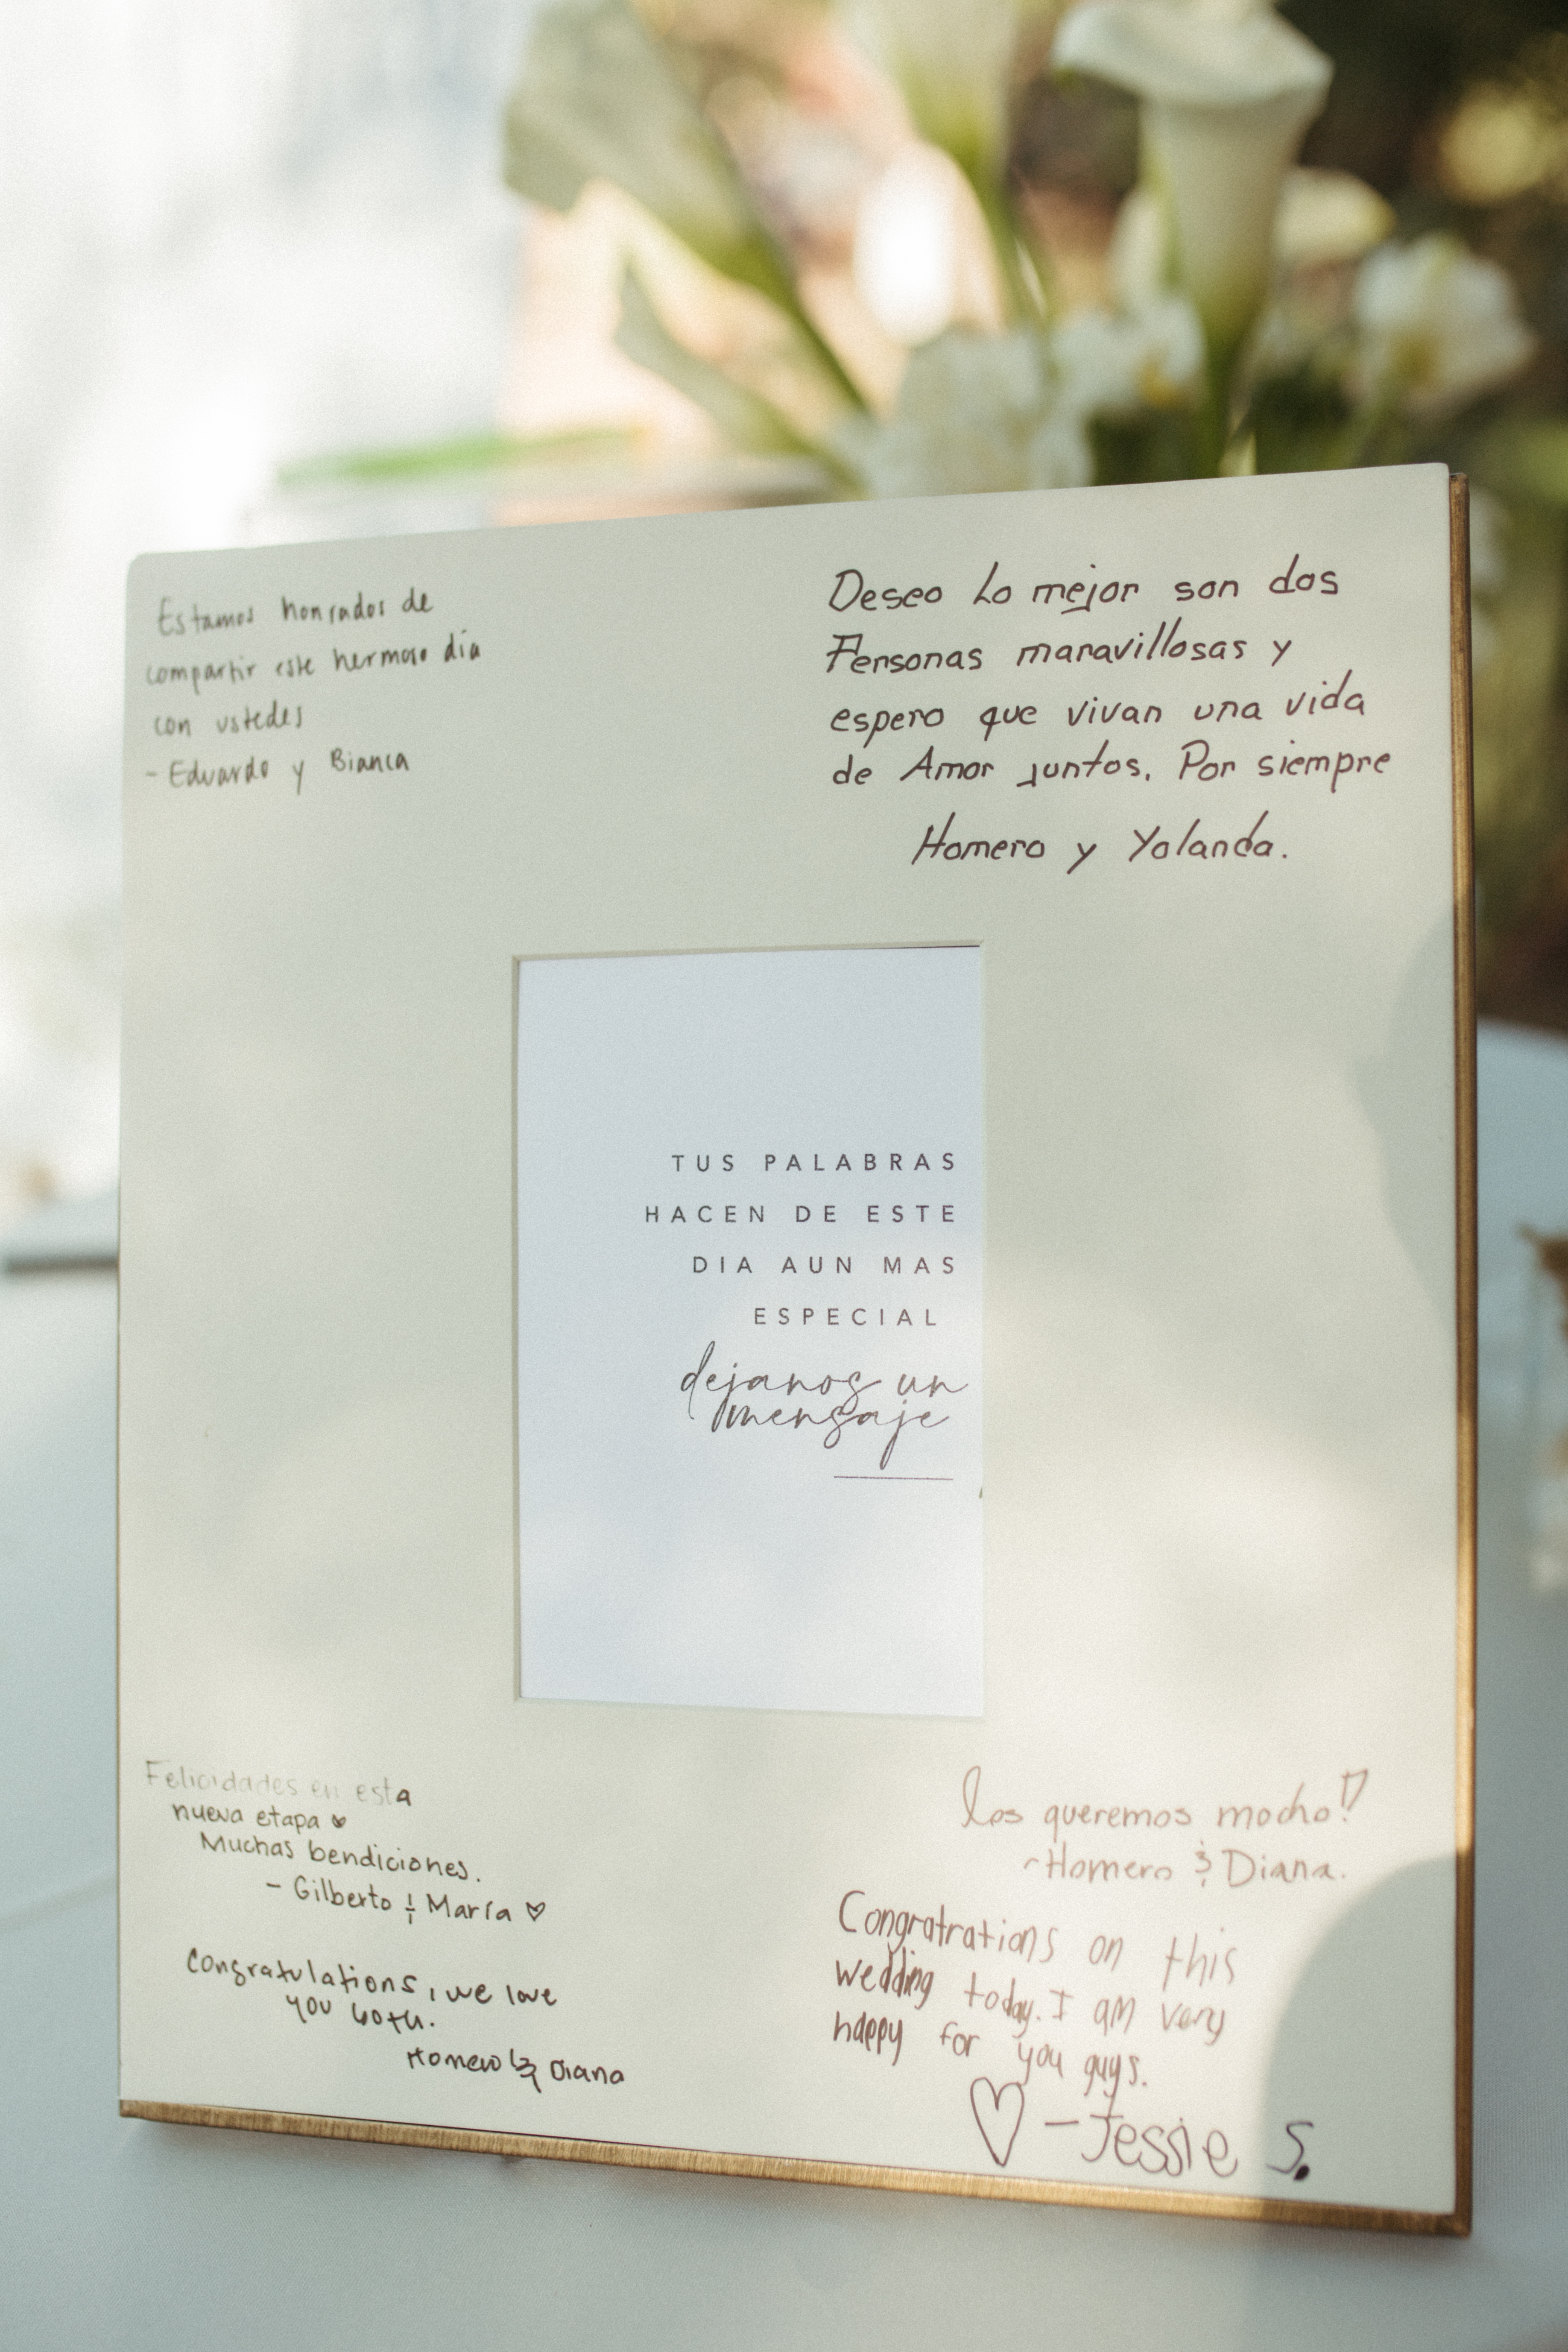 Estamos honrados de
compartir este hermoso día
con ustedes
- Eduardo y Bianca
Deseo Lo mejor son dos
Personas maravillosas y
espero que vivan una vida
de Amor juntos. Por siempre
Homero y Yolanda.
TUS PALABRAS
HACEN DE ESTE
DIA AUN MAS
ESPECIAL
dejanos un
mensaje
Felicidades en esta
nueva etapa
Muchas bendiciones.
- Gilberto & María
Congratulations, we love
you both.
Homero & Diana
los queremos mocho!
~Homero & Diana.
Congratrations on this
wedding today. I am very
happy for you guys.
- Jessie S.